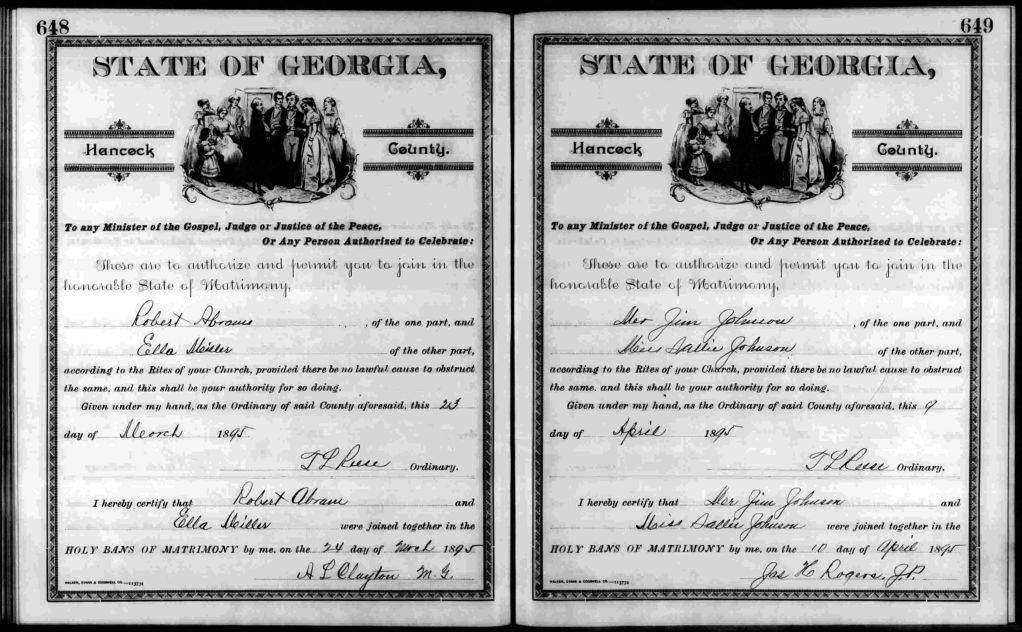 648
STATE OF GEORGIA,
Hancock County.
To any Minister of the Gospel, Judge or Justice of the Peace,
Or Any Person Authorized to Celebrate:
These are to authorize and permit you to join in the
honorable State of Matrimony,
Robert Abrams , of the one part, and
Ella Miller of the other part,
according to the Rites of your Church, provided there be no lawful cause to obstruct
the same, and this shall be your authority for so doing.
Given under my hand, as the Ordinary of said County aforesaid, this 23
day of March 1895
T L Reese Ordinary.
I hereby certify that Robert Abram and
Ella Miller were joined together in the
HOLY BANS OF MATRIMONY by me, on the 24 day of March 1895
A L Clayton M. G.
WALKER, EVANS & COGSWELL CO.—113774
649
STATE OF GEORGIA,
Hancock County.
To any Minister of the Gospel, Judge or Justice of the Peace,
Or Any Person Authorized to Celebrate:
These are to authorize and permit you to join in the
honorable State of Matrimony,
Mr Jim Johnson , of the one part, and
Miss Sallie Johnson of the other part,
according to the Rites of your Church, provided there be no lawful cause to obstruct
the same, and this shall be your authority for so doing.
Given under my hand, as the Ordinary of said County aforesaid, this 9
day of April 1895
T L Reese Ordinary.
I hereby certify that Mr Jim Johnson and
Miss Sallie Johnson were joined together in the
HOLY BANS OF MATRIMONY by me, on the 10 day of April 1895
Jas H Rogers, J.P.
WALKER, EVANS & COGSWELL CO.—113774